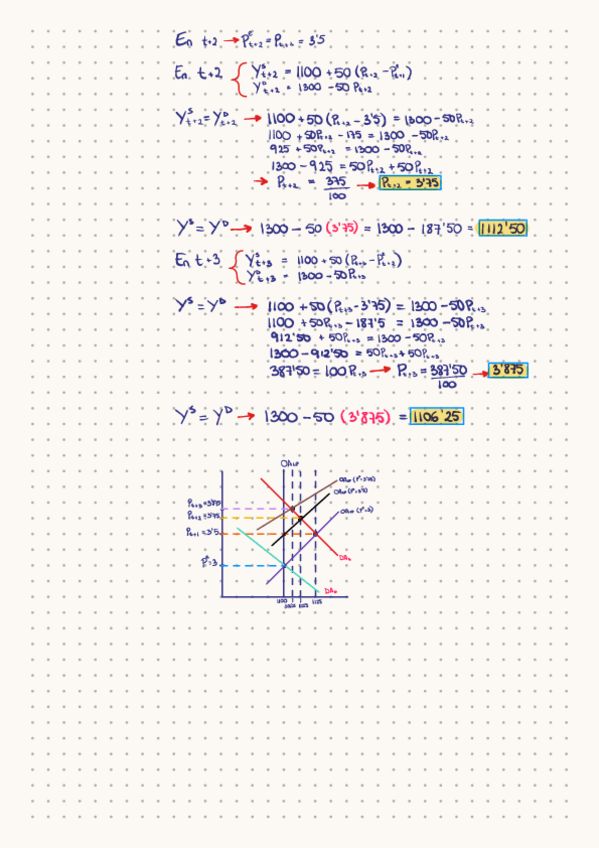 En t+2 → Pᴱt+2 = Pt+1 = 3'5
En t+2 { Yˢt+2 = 1100 + 50 (Pt+2 - Pᴱt+1)
Yᴰt+2 = 1300 - 50 Pt+2
Yˢt+2 = Yᴰt+2 → 1100 + 50 (Pt+2 - 3'5) = 1300 - 50Pt+2
1100 + 50Pt+2 - 175 = 1300 - 50Pt+2
925 + 50Pt+2 = 1300 - 50Pt+2
1300 - 925 = 50Pt+2 + 50Pt+2
→ Pt+2 = 375/100 → Pt+2 = 3'75
Yˢ = Yᴰ → 1300 - 50 (3'75) = 1300 - 187'50 = 1112'50
En t+3 { Yˢt+3 = 1100 + 50 (Pt+3 - Pᴱt+2)
Yᴰt+3 = 1300 - 50Pt+3
Yˢ = Yᴰ → 1100 + 50 (Pt+3 - 3'75) = 1300 - 50Pt+3
1100 + 50Pt+3 - 187'5 = 1300 - 50Pt+3
912'50 + 50Pt+3 = 1300 - 50Pt+3
1300 - 912'50 = 50Pt+3 + 50Pt+3
387'50 = 100Pt+3 → Pt+3 = 387'50/100 → 3'875
Yˢ = Yᴰ → 1300 - 50 (3'875) = 1106'25
OALP
Pt+2 = 3'75
Pt+1 = 3'5
Pᴱ = 3
DA₁
DA₀
1100
1125